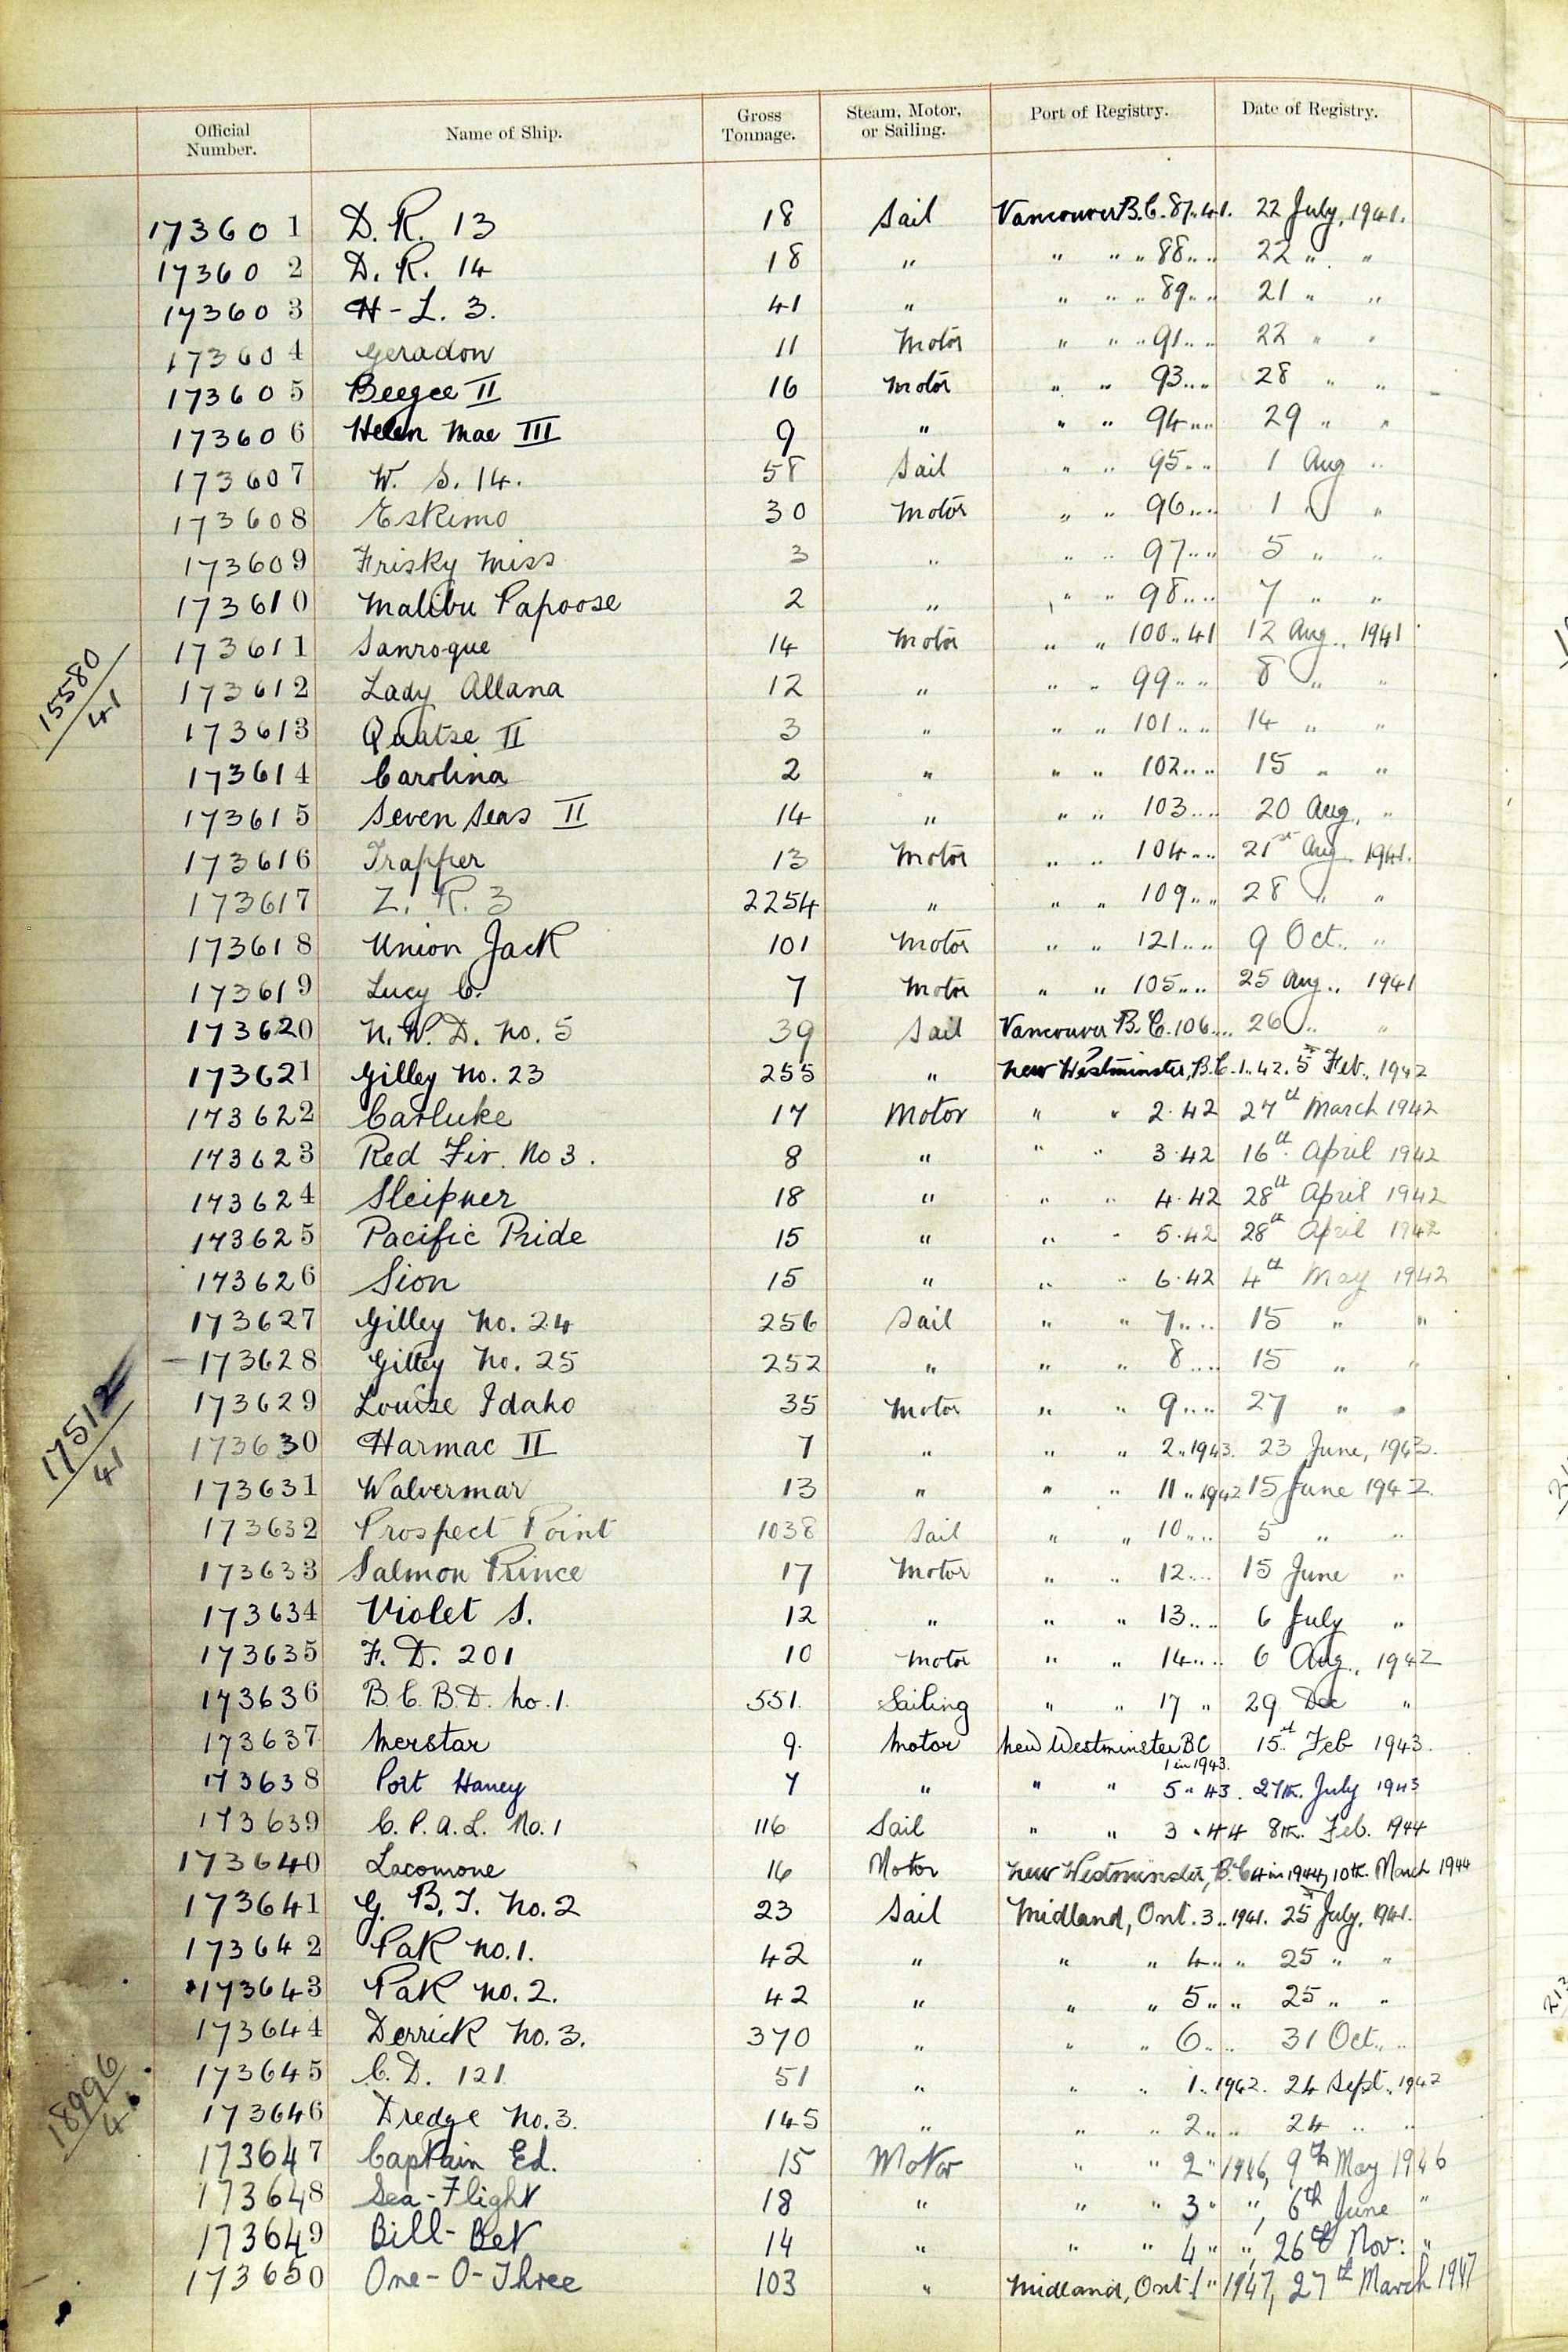 Official Number. Name of Ship. Gross Tonnage. Steam, Motor, or Sailing. Port of Registry. Date of Registry.
173601 D. R. 13 18 Sail Vancouver B.C. 87 „ 41. 22 July, 1941.
173602 D. R. 14 18 „ „ „ „ 88 „ „ 22 „ „
173603 H-L. 3. 41 „ „ „ „ 89 „ „ 21 „ „
173604 Geradon 11 Motor „ „ „ 91 „ „ 22 „ „
173605 Beegee II 16 Motor „ „ 93 „ „ 28 „ „
173606 Helen Mae III 9 „ „ „ 94 „ „ 29 „ „
173607 W. S. 14. 58 Sail „ „ 95 „ „ 1 Aug „
173608 Eskimo 30 Motor „ „ 96 „ „ 1 „ „
173609 Frisky Miss 3 „ „ „ 97 „ „ 5 „ „
173610 Malibu Papoose 2 „ „ „ 98 „ „ 7 „ „
173611 Sanroque 14 Motor „ „ 100 „ 41 12 Aug., 1941
15580/41
173612 Lady Allana 12 „ „ „ 99 „ „ 8 „ „
173613 Quatse II 3 „ „ „ 101 „ „ 14 „ „
173614 Carolina 2 „ „ „ 102 „ „ 15 „ „
173615 Seven Seas II 14 „ „ „ 103 „ „ 20 Aug. „
173616 Trapper 13 Motor „ „ 104 „ „ 21st Aug. 1941.
173617 Z. R. 3 2254 „ „ „ 109 „ „ 28 „ „
173618 Union Jack 101 Motor „ „ 121 „ „ 9 Oct. „
173619 Lucy C. 7 Motor „ „ 105 „ „ 25 Aug., 1941
173620 N. W. D. No. 5 39 Sail Vancouver B. C. 106 „ „ 26 „ „
173621 Gilley No. 23 255 „ New Westminster, B.C. 1 „ 42. 5 Feb., 1942
173622 Carluke 17 Motor „ „ 2.42 27th March 1942
173623 Red Fir. No 3. 8 „ „ „ 3.42 16th April 1942
173624 Sleipner 18 „ „ „ 4.42 28th April 1942
173625 Pacific Pride 15 „ „ „ 5.42 28th April 1942
173626 Sion 15 „ „ „ 6.42 4th May 1942
173627 Gilley No. 24 256 Sail „ „ 7 „ „ 15 „ „
173628 Gilley No. 25 252 „ „ „ 8 „ „ 15 „ „
173629 Louise Idaho 35 Motor „ „ 9 „ „ 27 „ „
17512/41
173630 Harmac II 7 „ „ „ 2 „ 1943. 23 June, 1943.
173631 Walvermar 13 „ „ „ 11 „ 1942 15 June 1942.
173632 Prospect Point 1038 Sail „ „ 10 „ „ 5 „ „
173633 Salmon Prince 17 Motor „ „ 12 „ „ 15 June „
173634 Violet S. 12 „ „ „ 13 „ „ 6 July „
173635 F. D. 201 10 Motor „ „ 14 „ „ 6 Aug., 1942
173636 B.C.B.D. No. 1. 551. Sailing „ „ 17 „ 29 Dec „
173637 Merstar 9. Motor New Westminster BC 15th Feb 1943.
1 in 1943.
173638 Port Haney 7 „ „ „ 5 „ 43. 27th. July 1943
173639 C. P. A. L. No. 1 116 Sail „ „ 3 „ 44 8th. Feb. 1944
173640 Lacomone 16 Motor New Westminster, B.C. 4 in 1944, 10th. March 1944
173641 G. B. T. No. 2 23 Sail Midland, Ont. 3 „ 1941. 25 July, 1941.
173642 Pak No. 1. 42 „ „ „ 4 „ „ 25 „ „
173643 Pak No. 2. 42 „ „ „ 5 „ „ 25 „ „
173644 Derrick No. 3. 370 „ „ „ 6 „ „ 31 Oct., „
173645 C. D. 121 51 „ „ „ 1 „ 1942. 24 Sept., 1942
18996/4
173646 Dredge No. 3. 145 „ „ „ 2 „ „ 24 „ „
173647 Captain Ed. 15 Motor „ „ 2 „ 1946, 9th May 1946
173648 Sea-Flight 18 „ „ „ 3 „ „, 6th June „
173649 Bill-Bet 14 „ „ „ 4 „ „, 26th Nov: „
173650 One-O-Three 103 „ Midland, Ont 1 „ 1947, 27th March 1947